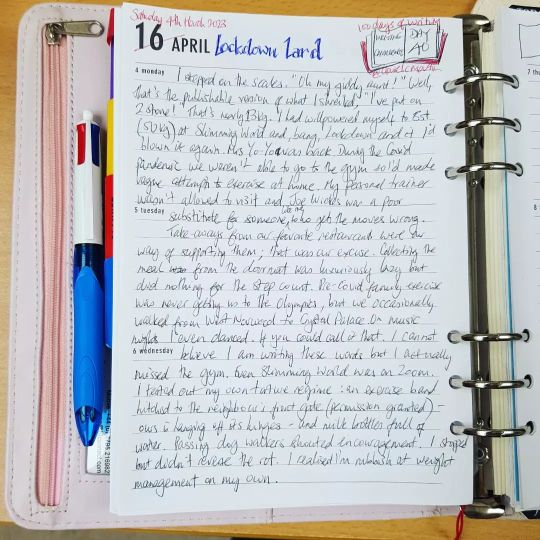 Saturday 4th March 2023
16 APRIL Lockdown Lard
100 days of writing
DAY
40
4 monday
I stepped on the scales. "Oh my giddy aunt!" Well,
that's the publishable version of what I shrieked, "I've put on
2 stone! That's nearly 13kg. I had willpowered myself to 8st
(50kg) at Slimming World and, bang, Lockdown and I'd
blown it again. Mrs Yo-Yo was back. During the Covid
pandemic we weren't able to go to the gym so I'd made
vague attempts to exercise at home. My personal trainer
wasn't allowed to visit and Joe Wicks was a poor
5 tuesday
substitute for someone like me, who gets the moves wrong.
Take-aways from our favourite restaurants were our
way of supporting them; that was our excuse. Collecting the
meal from the doormat was luxuriously lazy but
did nothing for the step count. Pre-Covid family exercise
was never getting us to the Olympics, but we occasionally
walked from West Norwood to Crystal Palace. On music
nights I even danced, if you could call it that. I cannot
6 wednesday
believe I am writing these words but I actually
missed the gym. Even Slimming World was on Zoom.
I tested out my own torture regime: an exercise band
hitched to the neighbour's front gate (permission granted) -
ours is hanging off its hinges - and milk bottles full of
water. Passing dog walkers shouted encouragement. I stopped
but didn't reverse the rot. I realised I'm rubbish at weight
management on my own.